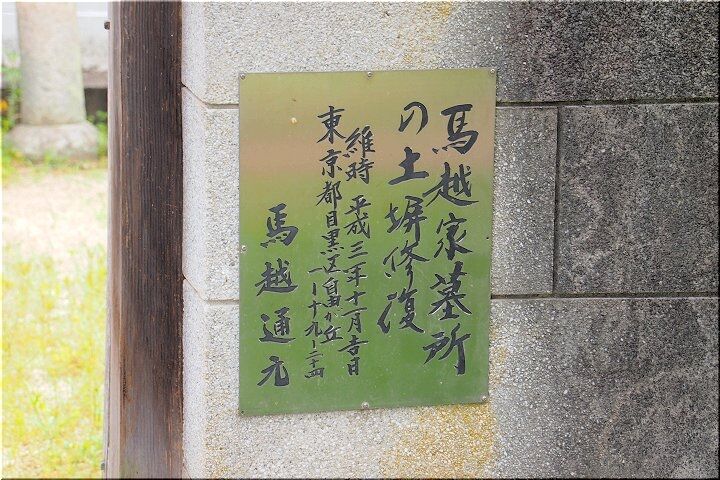 馬越家墓所
の土塀修復
維時 平成三年十一月吉日
東京都目黒区自由が丘
一ー十九ー二十四
馬越通元